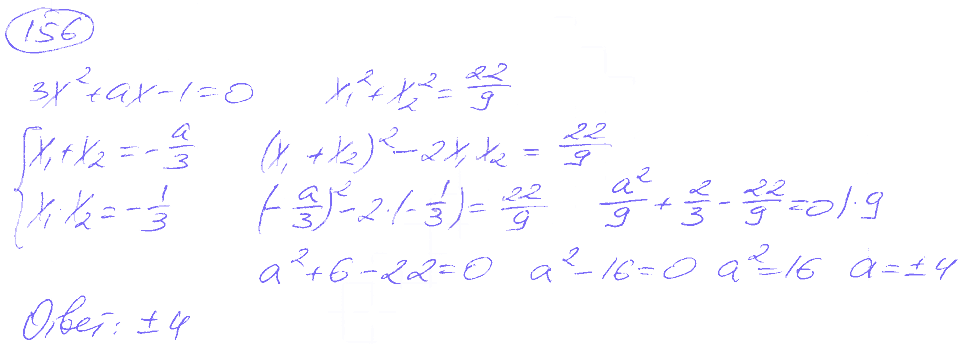 156
3x²+ax-1=0 x₁²+x₂²=22/9
{x₁+x₂=-a/3 (x₁+x₂)²-2x₁x₂=22/9
x₁·x₂=-1/3 (-a/3)²-2·(-1/3)=22/9 a²/9+2/3-22/9=0|·9
a²+6-22=0 a²-16=0 a²=16 a=±4
Ответ: ±4